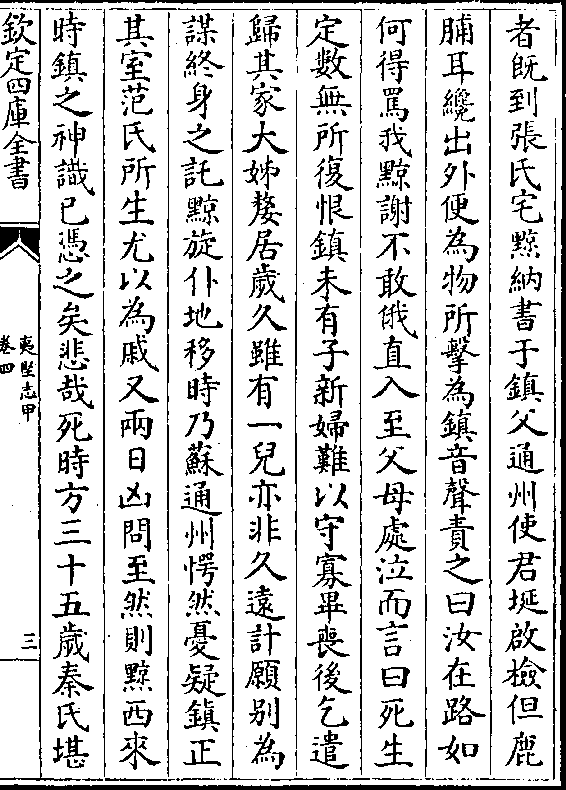 者既到張氏宅黥納書于鎮父通州使君埏啟檢但鹿
脯耳纔出外便為物所擊為鎮音聲責之曰汝在路如
何得罵我黥謝不敢俄直入至父母處泣而言曰死生
定數無所復恨鎮未有子新婦難以守寡畢喪後乞遣
歸其家大姊嫠居歲久雖有一兒亦非久遠計願別為
謀終身之託黥旋仆地移時乃蘇通州愕然憂疑鎮正
其室范氏所生尤以為戚又兩日凶問至然則黥西來
時鎮之神識已憑之矣悲哉死時方三十五歲秦氏堪
欽定四庫全書
夷堅志甲
卷四
三